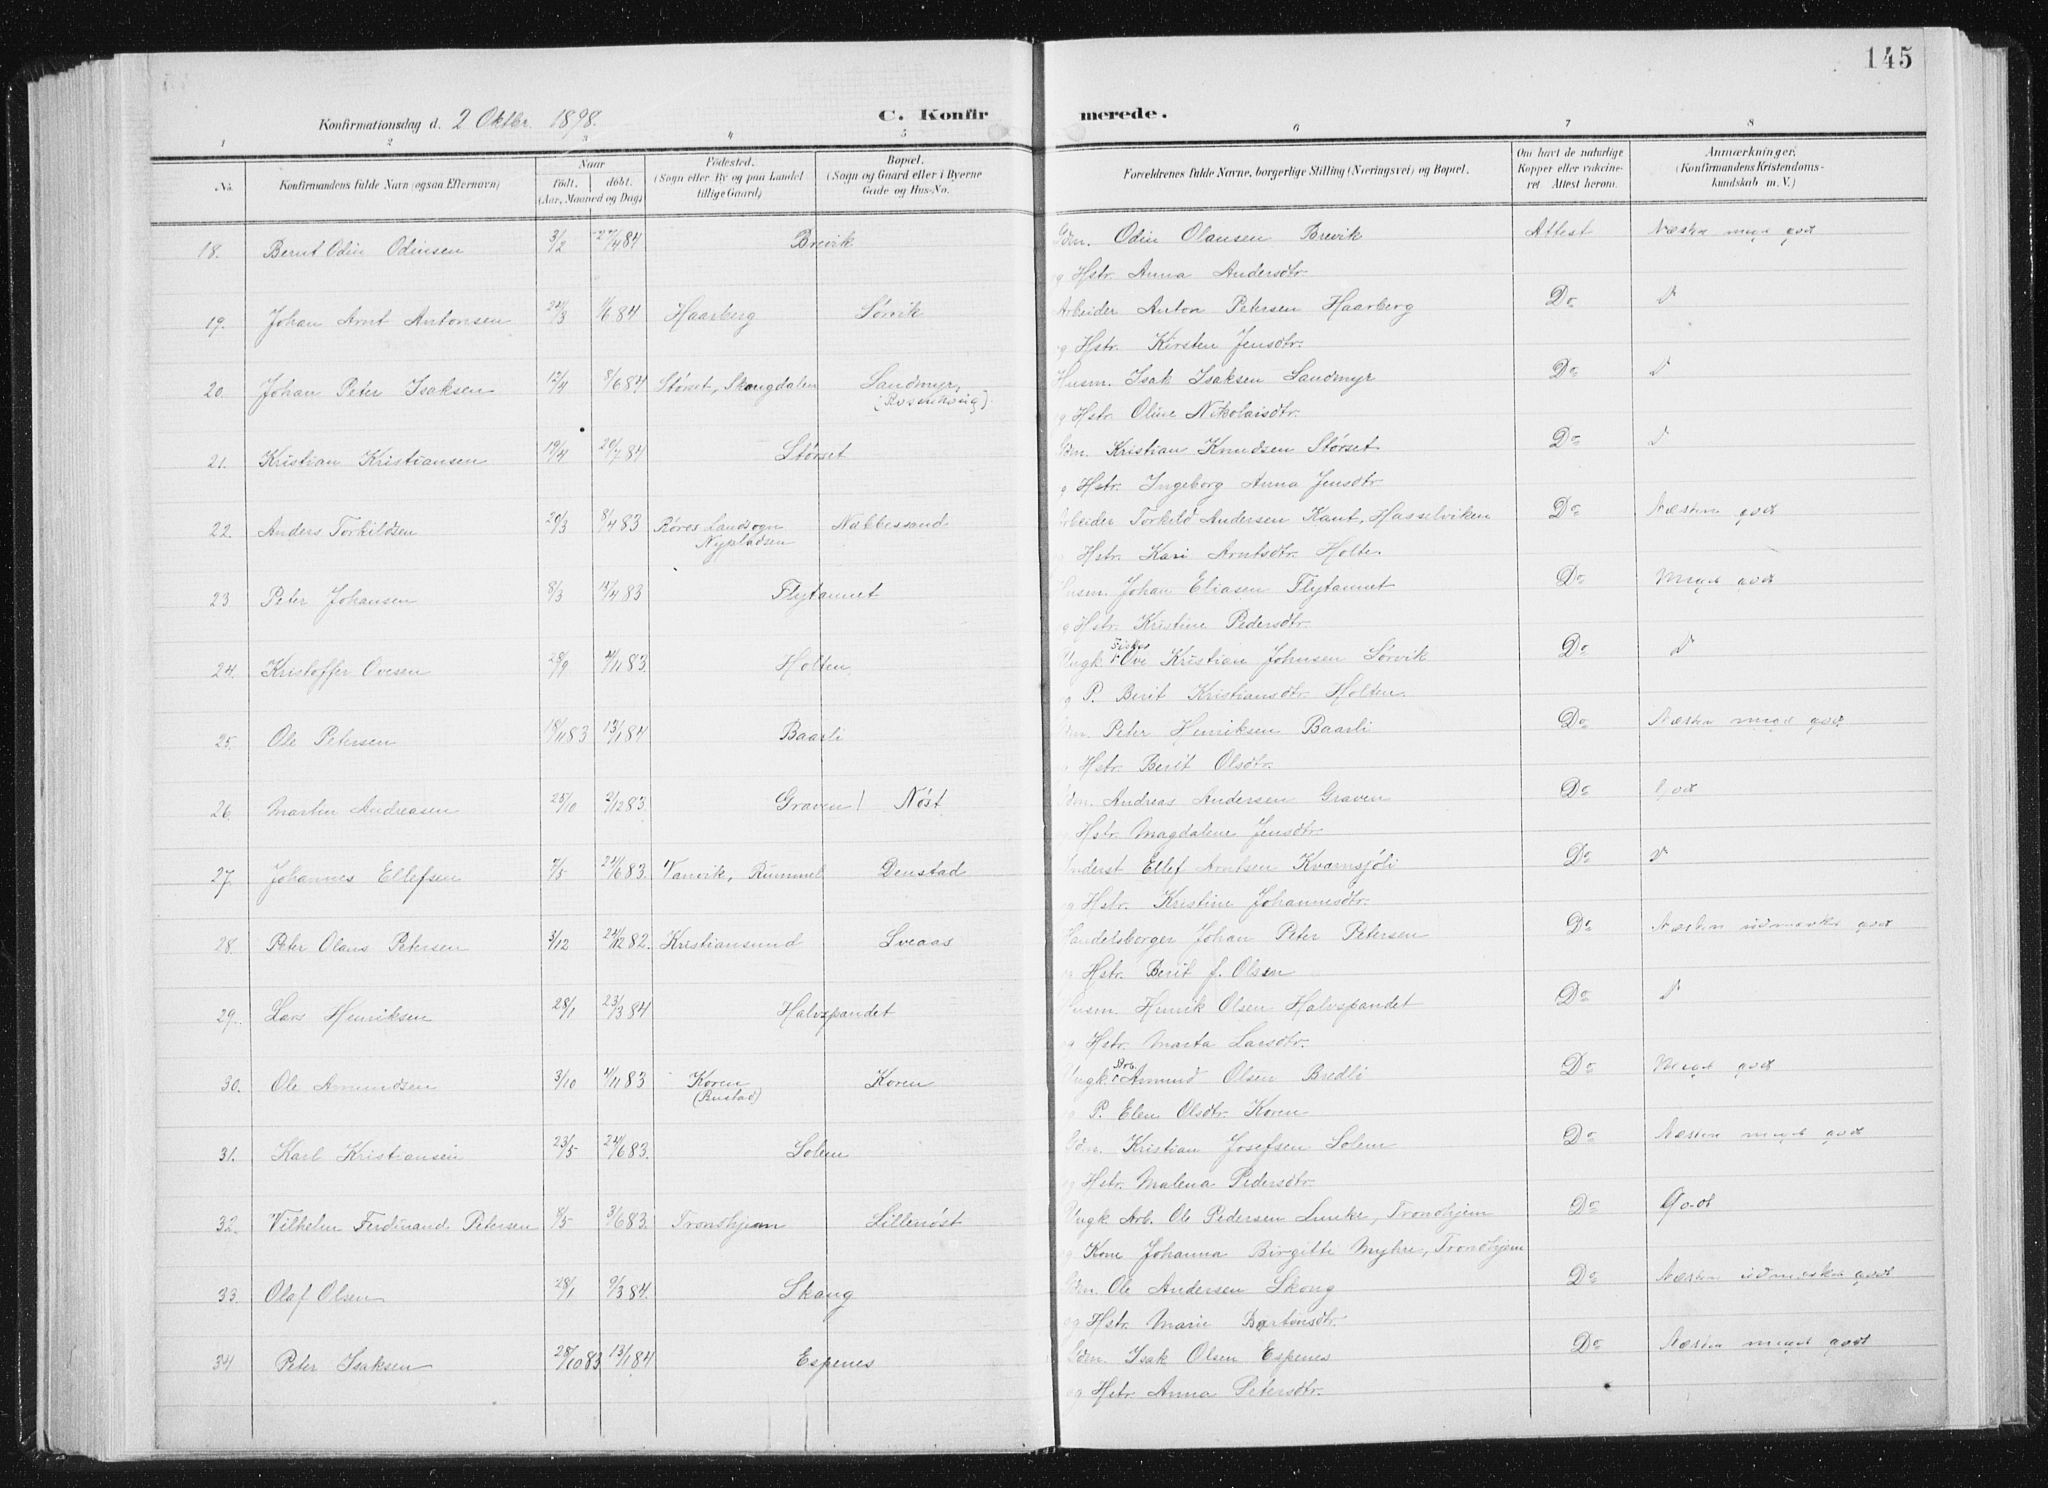 145
Konfirmationsdag d. 2 Oktbr. 1898.
C. Konfirmerede.
1 2 3 4 5 6 7 8
No. Konfirmandens fulde Navn (ogsaa Efternavn) Naar født. døbt. (Aar, Maaned og Dag) Fødested. (Sogn eller By og paa Landet tillige Gaard) Bopæl. (Sogn og Gaard eller i Byerne Gade og Hus-No. Forældrenes fulde Navne, borgerlige Stilling (Næringsvei) og Bopæl. Om havt de naturlige Kopper eller vakcineret Attest herom. Anmærkninger. (Konfirmandens Kristendomskundskab m. V.)
18. Bernt Odin Odinsen 3/2 27/4 84 Brevik Gdm. Odin Olausen Brevik Attest Næsten meget godt
og Hstr. Anna Andersdtr.
19. Johan Arnt Antonsen 22/3 1/6 84 Haarberg Sørvik Arbeider Anton Petersen Haarberg Do
og Hstr. Kirsten Jensdtr.
20. Johan Peter Isaksen 12/4 8/6 84 Størset, Skaugdalen Landmyr, Husm. Isak Isaksen Landmyr Do
og Hstr. Oline Nikolaisdtr.
21. Kristian Kristiansen 19/4 20/7 84 Størset Gdm. Kristian Knudsen Størset Do
og Hstr. Ingeborg Anna Jensdtr.
22. Anders Torkildsen 20/3 8/4 83 Røros Landsogn Nypladsen Nabbessand Arbeider Torkild Andersen Kant, Hasselviken Do Næsten godt
Hstr. Kari Arntsdtr. Holte.
23. Peter Johansen 8/3 15/4 83 Flytannet Husm. Johan Eliasen Flytannet Do Meget godt
og Hstr. Kristine Pedersdtr.
24. Kristoffer Ovesen 28/9 4/11 83 Holten Ungk. Fisker Ove Kristian Johnsen Sørvik Do
og P. Berit Kristiansdtr. Holten.
25. Ole Petersen 18/11 83 13/1 84 Baarli Peter Henriksen Baarli Do Næsten meget godt
Hstr. Berit Olsdtr.
26. Martin Andreasen 25/10 2/12 83. Graven Nøst Gdm. Andreas Andersen Graven Do Godt
Hstr. Magdalene Jensdtr.
27. Johannes Ellefsen 7/5 24/6 83. Vanvik, Rummel Denstad Inderst Ellef Arntsen Kvarnsjøli Do
og Hstr. Kristine Johannesdtr.
28. Peter Olaus Petersen 3/12 24/12 82. Kristiansund Sveaas Handelsborger Johan Peter Petersen Do Næsten udmærket godt
Hstr. Berit f. Olsen
29. Lars Henriksen 28/1 23/3 84 Halvspandet Husm. Henrik Olsen Halvspandet Do
og Hstr. Marta Larsdtr.
30. Ole Amundsen 3/10 4/11 83 Koren (Bustad) Koren Ungk. Arb. Amund Olsen Bredli Do Meget godt
P. Elen Olsdtr. Koren
31. Karl Kristiansen 23/5 24/6 83. Solem Gdm. Kristian Josefsen Solem Do Næsten meget godt
og Hstr. Malena Pedersdtr.
32. Vilhelm Ferdinand Petersen 8/5 3/6 83. Trondhjem Lillenøst Ungk. Arb. Ole Pedersen Trondhjem Do Godt
og Kone Johanna Birgitte Myhre, Trondhjem
33. Olaf Olsen 28/1 9/3 84. Skaug Gdm. Ole Andersen Skaug Do Næsten udmærket godt
og Hstr. Marie Bortinsdtr.
34 Peter Isaksen 28/10 83 13/1 84 Espenes Gdm. Isak Olsen Espenes Do Næsten meget godt
og Hstr. Anna Petersdtr.